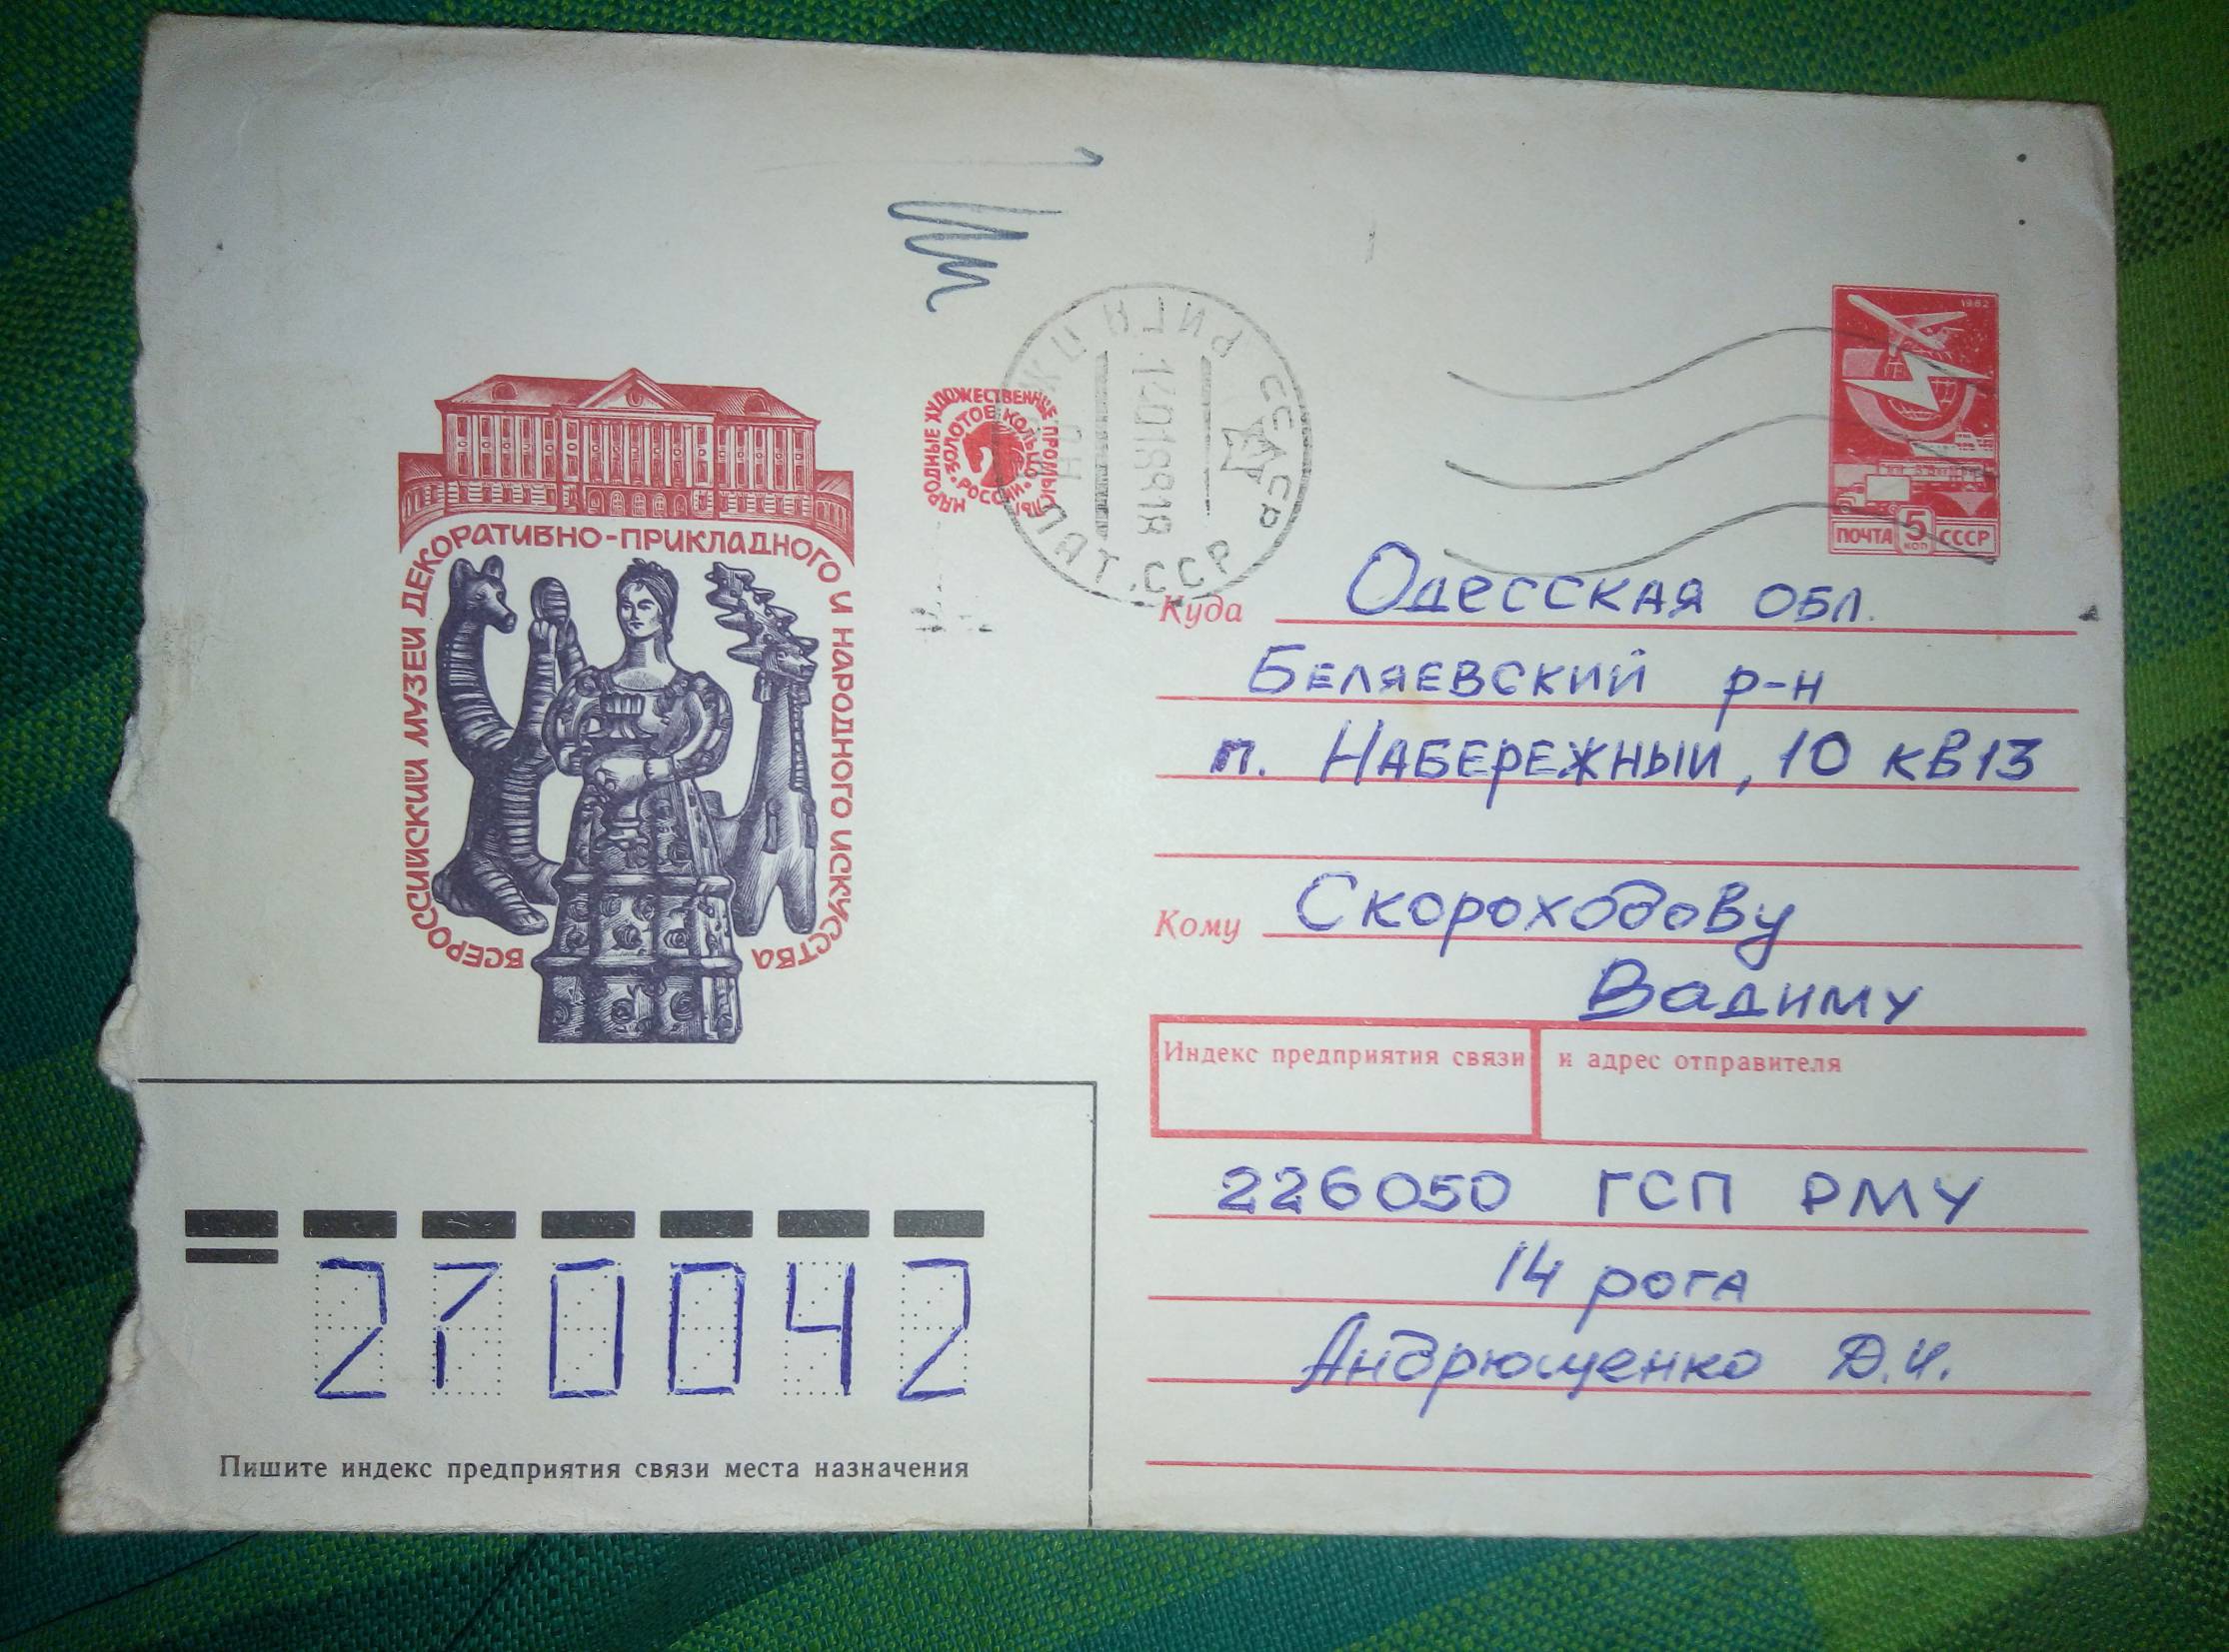 1982
ПОЧТА 5 КОП СССР
ВСЕРОССИЙСКИЙ МУЗЕЙ ДЕКОРАТИВНО-ПРИКЛАДНОГО И НАРОДНОГО ИСКУССТВА
НАРОДНЫЕ ХУДОЖЕСТВЕННЫЕ ПРОМЫСЛЫ
ЗОЛОТОЕ КОЛЬЦО
РОССИИ
РИГА
СССР
ЛАТ. ССР
Куда Одесская обл.
Беляевский р-н
п. Набережный, 10 кв13
Кому Скороходову
Вадиму
Индекс предприятия связи и адрес отправителя
226050 ГСП РМУ
14 рота
Андрющенко Д.И.
270042
Пишите индекс предприятия связи места назначения